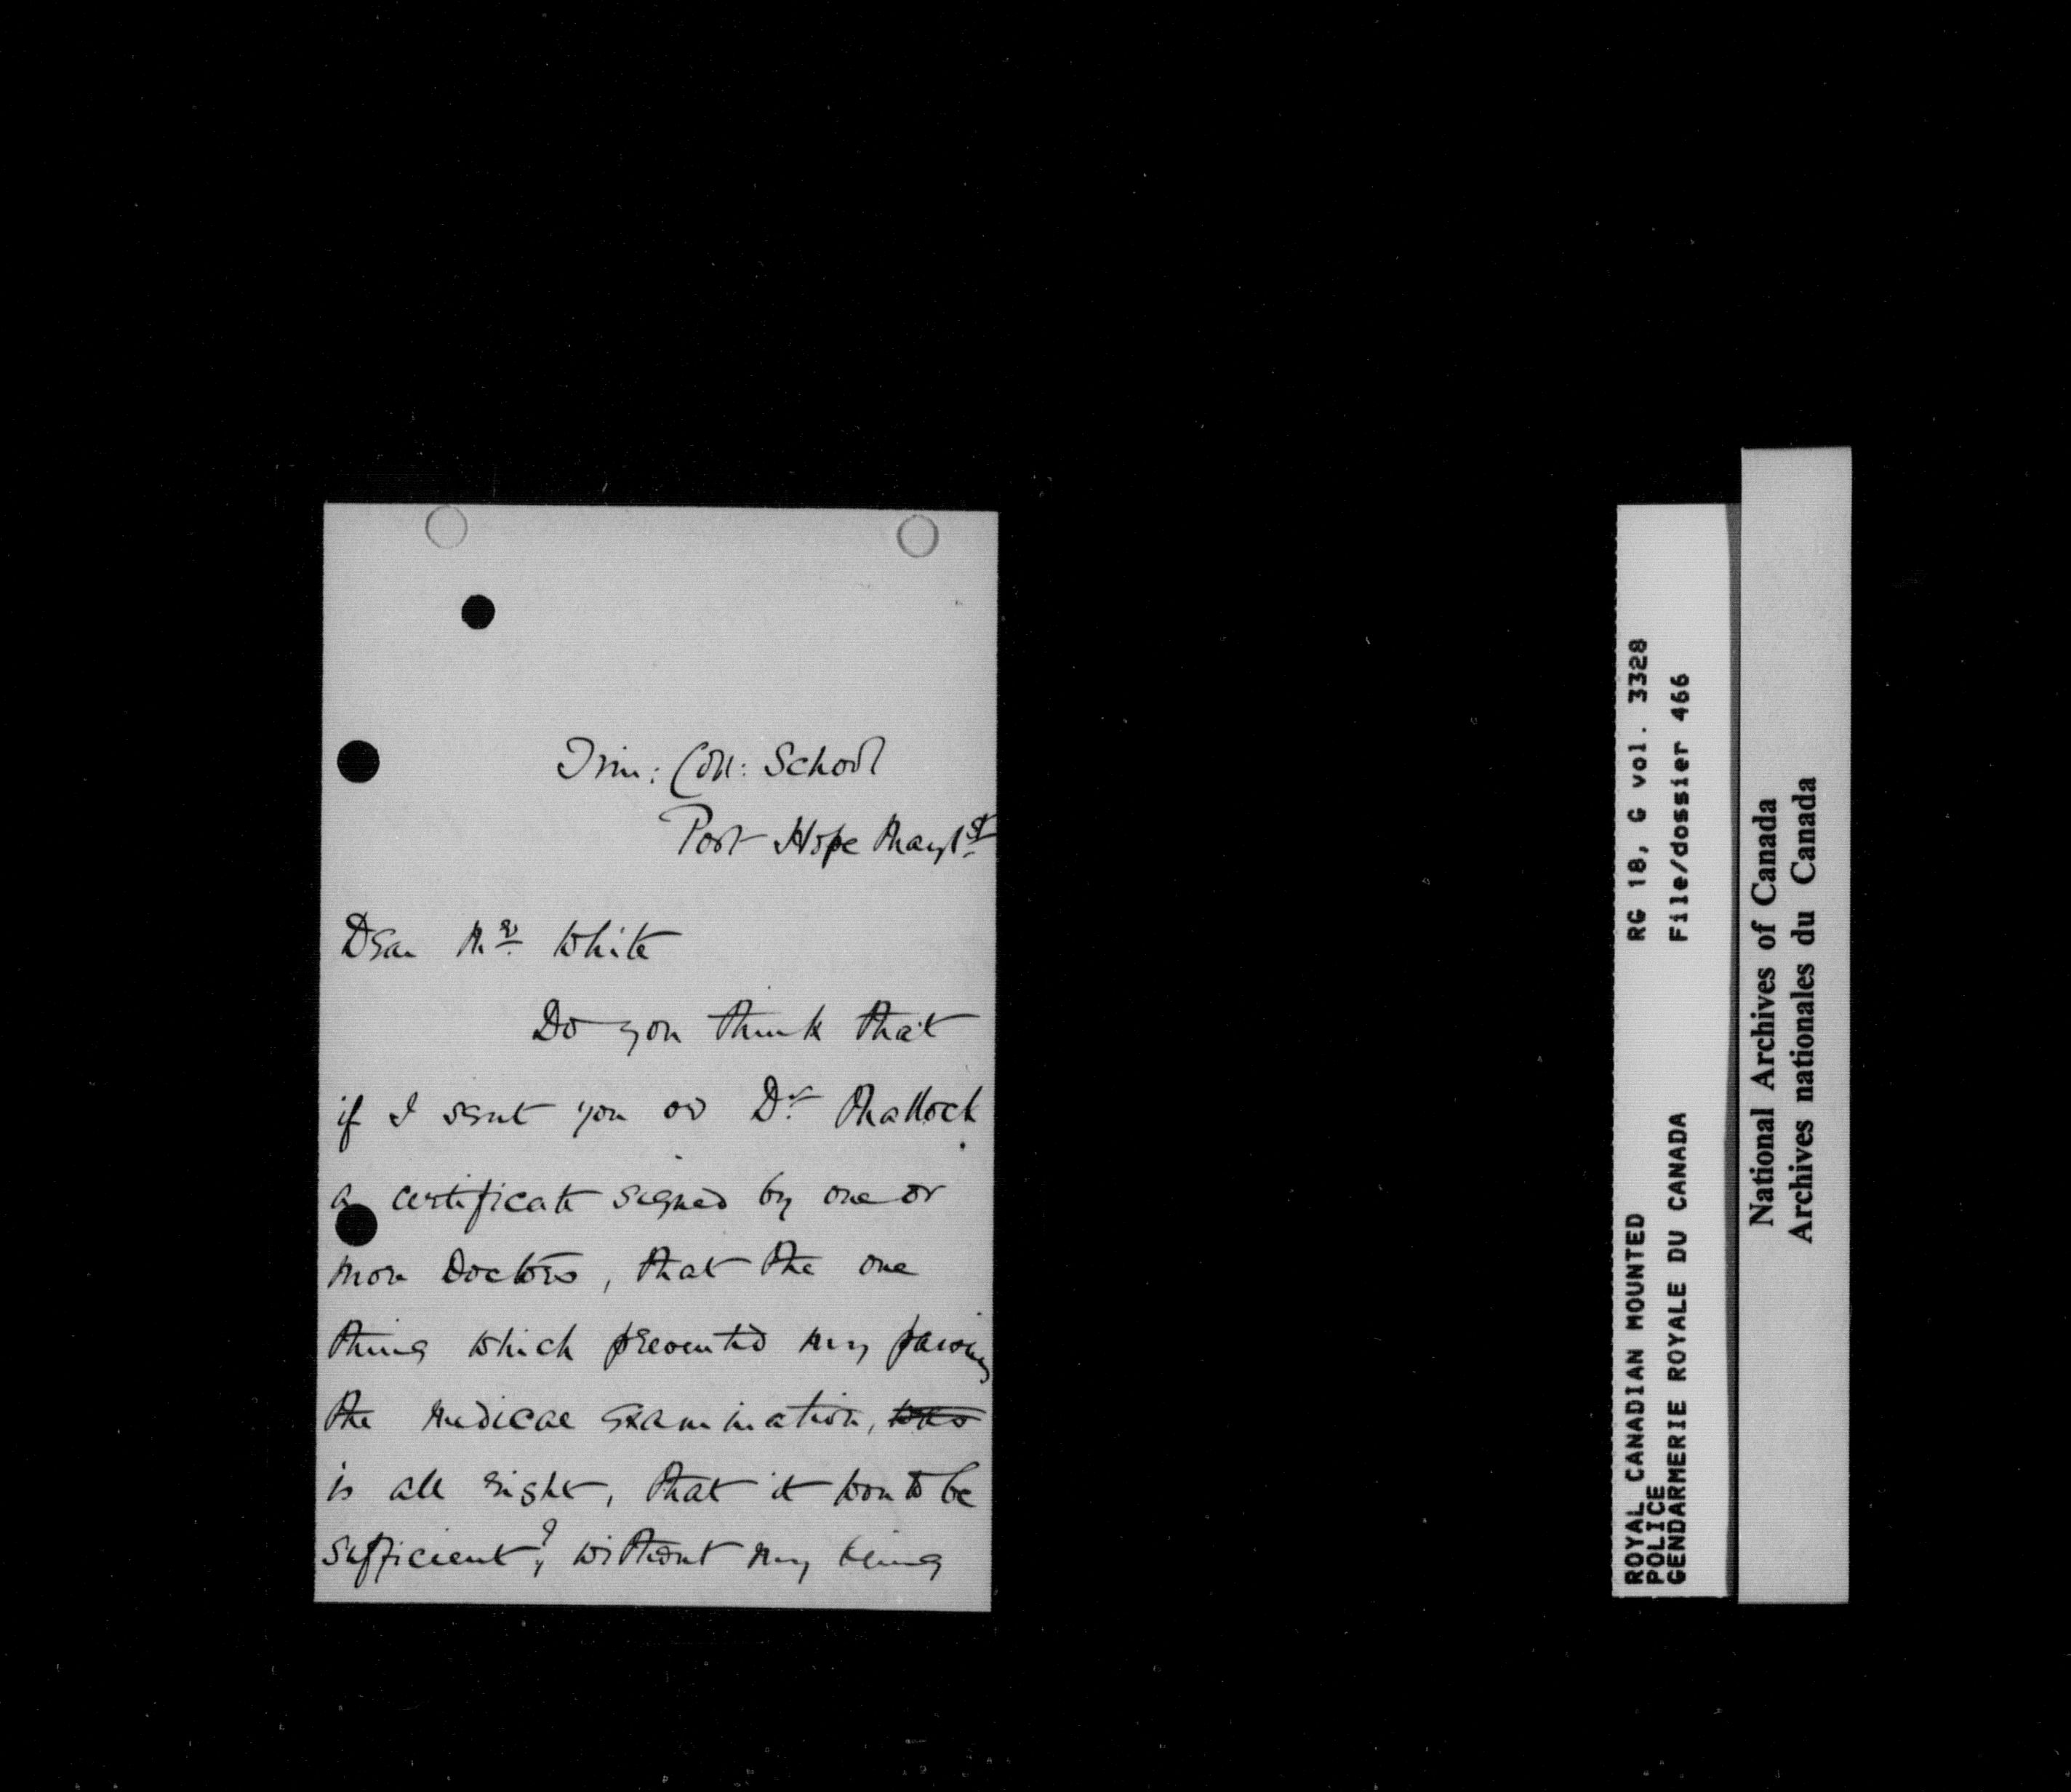 Trin: Coll: School
Port Hope May 1st
Dear Mr White
Do you think that
if I sent you or Dr Mallock
a certificate signed by one or
more Doctors, that the one
thing which prevented my passing
the medical examination, was
is all right, that it wou'd be
sufficient?, without my being
ROYAL CANADIAN MOUNTED
POLICE
GENDARMERIE ROYALE DU CANADA
RG 18, G vol. 3328
File/dossier 466
National Archives of Canada
Archives nationales du Canada